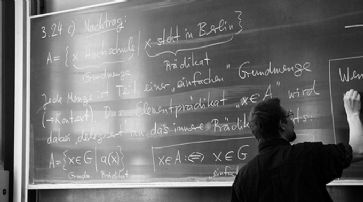 3.24 c) Nachtrag:
A = { x Hochschule | x steht in Berlin }
Grundmenge Prädikat
Jede Menge ist Teil einer „einfachen" Grundmenge
(→ Kontext) Das Elementprädikat „x∈A" wird
dabei delegiert an das innere Prädikat
A = { x∈G | a(x) } x∈A :⇔ x∈G
Grundm. Prädikat einfach
Wen